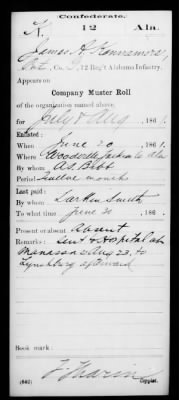 Confederate.
K. 12 Ala.
James A. Kennamore,
Pvt., Co. , 12 Reg't Alabama Infantry.
Appears on
Company Muster Roll
of the organization named above,
for July & Aug, 186 .
Enlisted:
When June 20, 186 .
Where Woodville, Ala
By whom A.S. Bibb
Period Twelve months
Last paid:
By whom Larkin Smith
To what time June 30, 186 .
Present or absent Absent
Remarks: Sent to Hospital at
Manassas Aug 23, to
Lynchburg afterward
Book mark:
(642) Copyist.